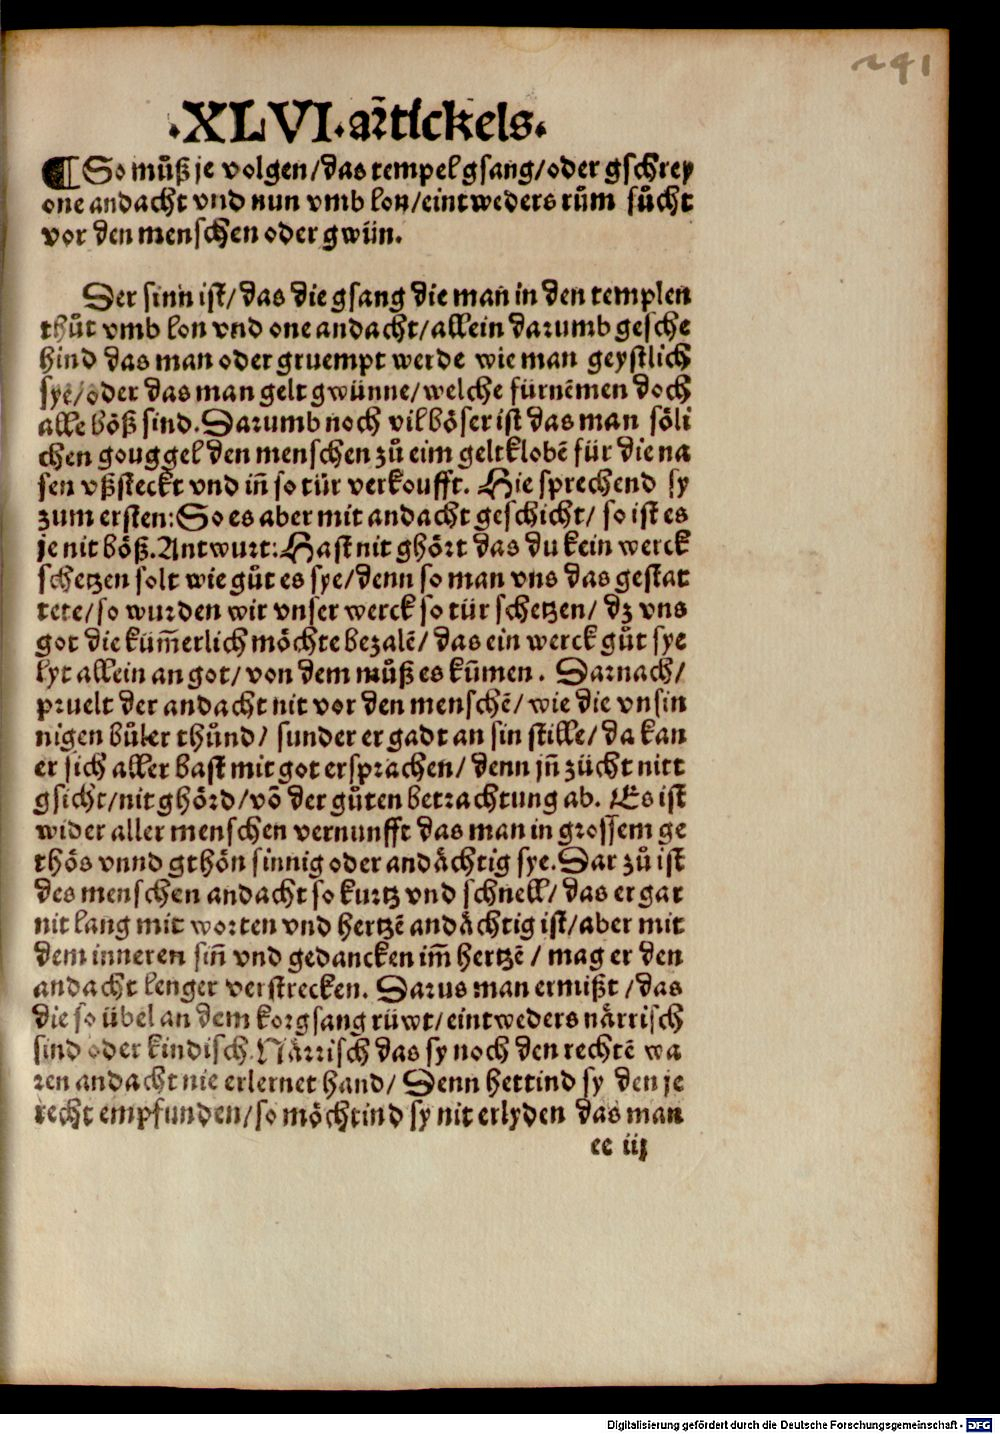 241
.XLVI.artickels.
¶ So muͦß je volgen/das tempel gsang/oder gschrey
one andacht vnd nun vmb lon/eintweders ruͦm suͦcht
vor den menschen oder gwün.
Der sinn ist/das die gsang die man in den templen
thuͦt vmb lon vnd one andacht/allein darumb gesche
hind das man oder gruempt werde wie man geystlich
sye/oder das man gelt gwünne/welche fürnēmen doch
alle böß sind.Darumb noch vil böser ist das man söli
chen gouggel den menschen zuͦ eim geltklobē für die na
sen vßsteckt vnd in̄ so tür verkoufft. Hie sprechend sy
zum ersten:So es aber mit andacht geschicht/ so ist es
je nit böß.Antwurt:Hast nit ghört das du kein werck
schetzen solt wie guͦt es sye/denn so man vns das gestat
tete/so wurden wir vnser werck so tür schetzen/ dz vns
got dieküm̄erlich möchte bezalē/ das ein werck guͦt sye
lyt allein an got/von dem muͦß es kum̄en. Darnach/
pruelt der andacht nit vor den menschē/wie die vnsin
nigen buͦler thuͦnd/ sunder er gadt an sin stille/da kan
er sich aller bast mit got ersprachen/denn jn̄ zücht nitt
gsicht/nit ghörd/vō der guͦten betrachtung ab. Es ist
wider aller menschen vernunfft das man in grossem ge
thös vnnd gthön sinnig oder andächtig sye.Dar zuͦ ist
des menschen andacht so kurtz vnd schnell/das er gar
nit lang mit worten vnd hertzē andächtig ist/aber mit
dem inneren sin̄ vnd gedancken im̄ hertzē/ mag er den
andacht lenger verstrecken. Darus man ermißt/das
die so übel an dem korgsang rüwt/eintweders närrisch
sind oder kindisch.Närrisch das sy noch den rechtē wa
ren andacht nie erlernet hand/ Denn hettind sy den je
recht empfunden/so möchtind sy nit erlyden das man
ee iij
Digitalisierung gefördert durch die Deutsche Forschungsgemeinschaft - DFG